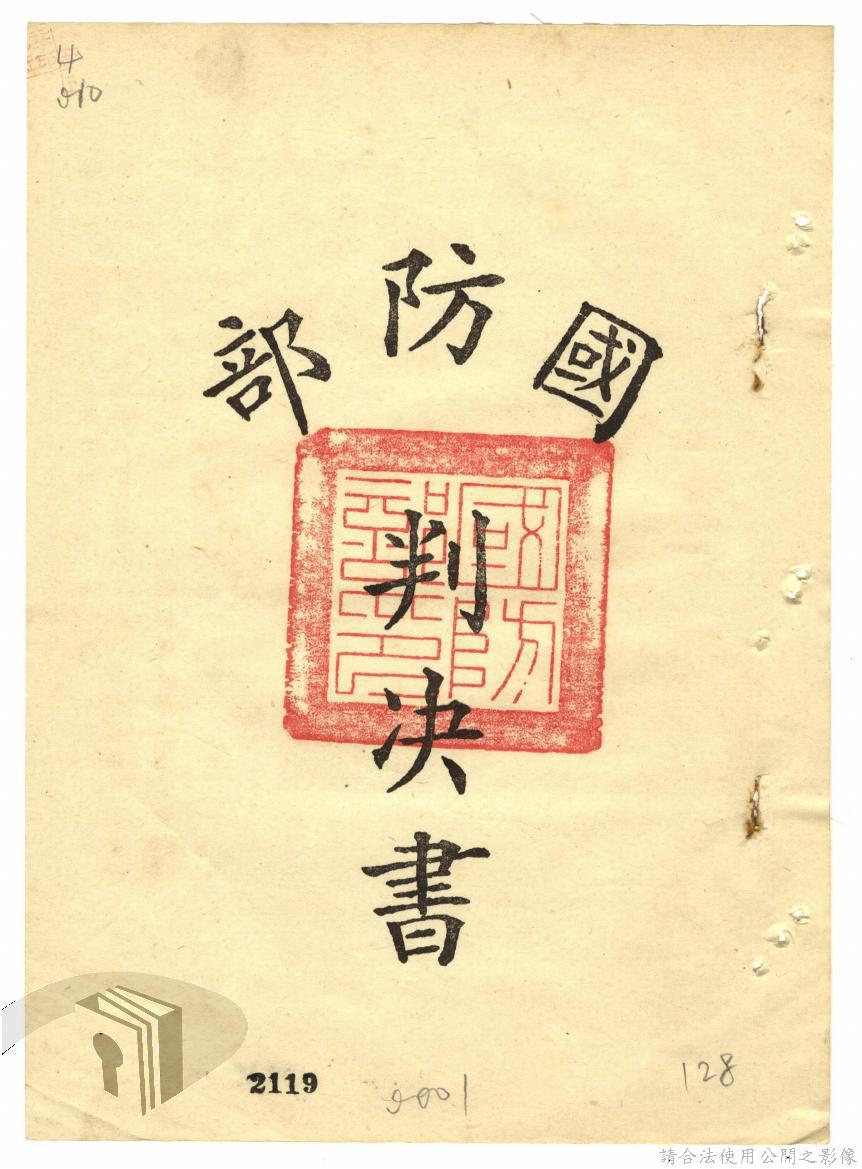 4
010
國防部
判決書
國防部印
2119
0001
128
請合法使用公開之影像